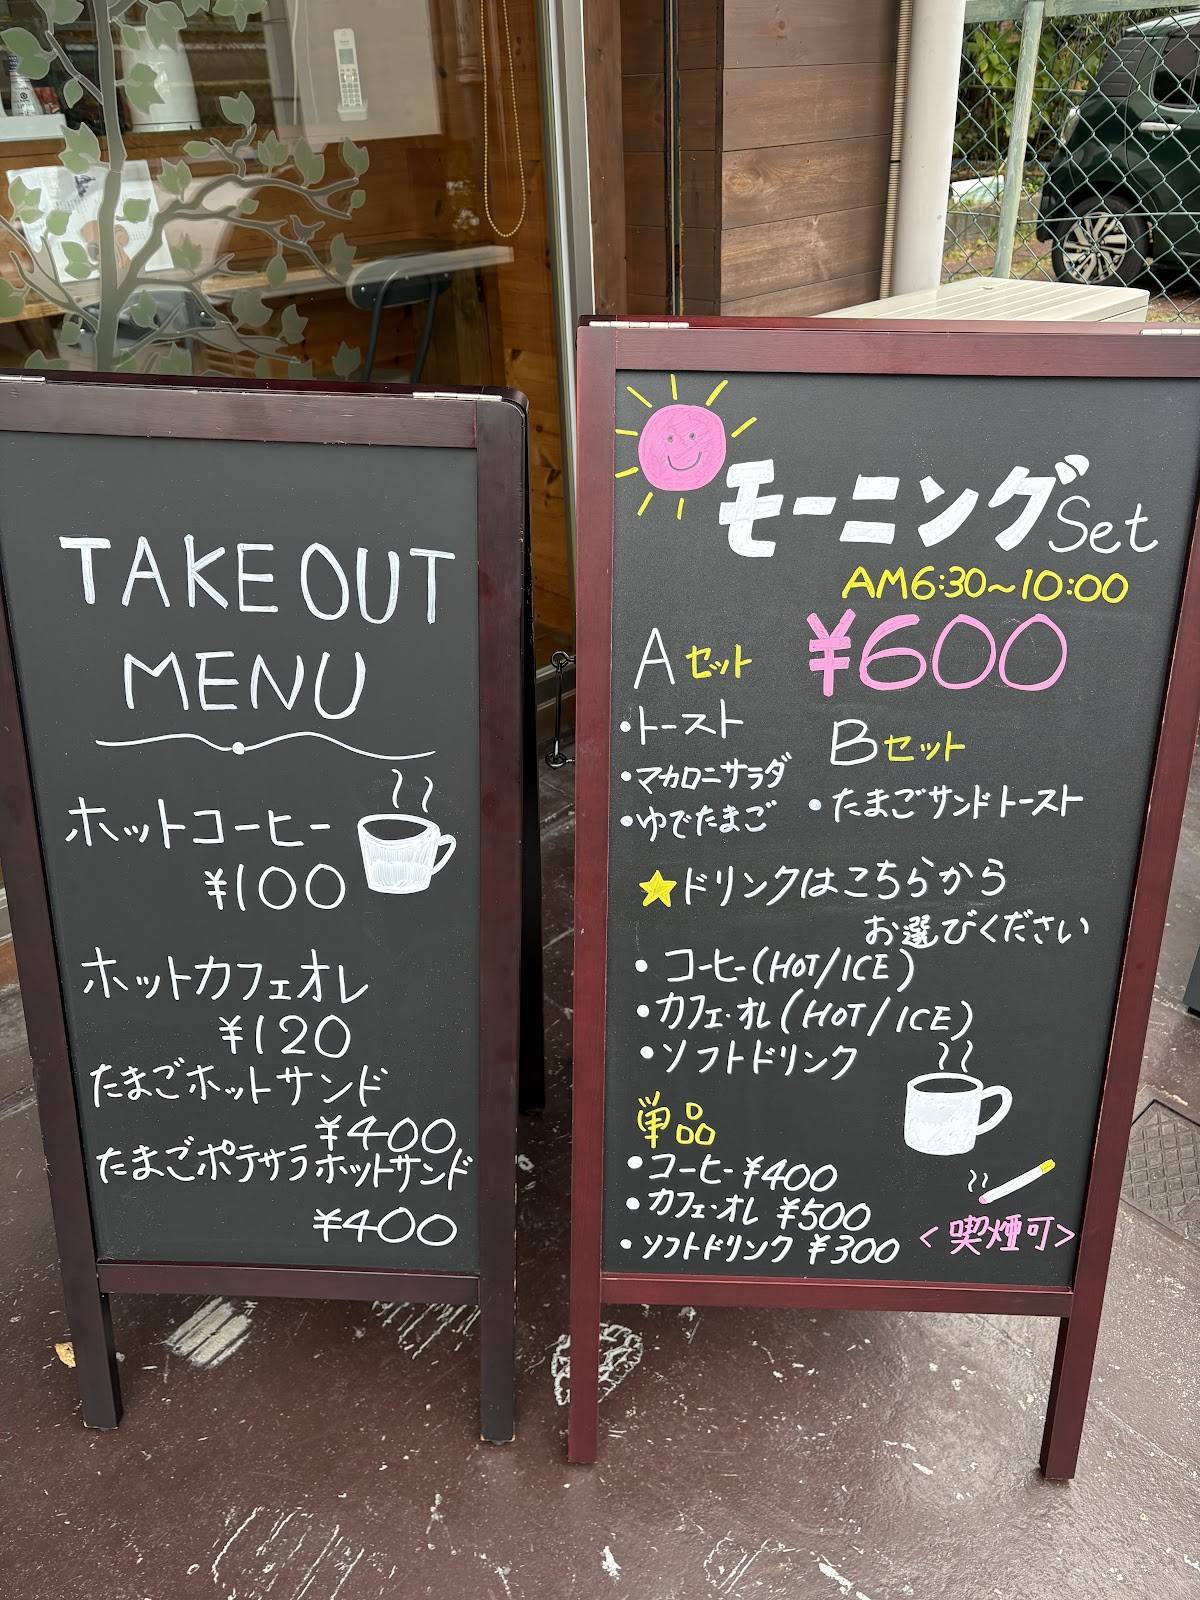 TAKE OUT
MENU
ホットコーヒー
¥100
ホットカフェオレ
¥120
たまごホットサンド
¥400
たまごポテサラホットサンド
¥400
モーニングSet
AM6:30~10:00
¥600
Aセット
・トースト
・マカロニサラダ
・ゆでたまご
Bセット
・たまごサンドトースト
★ドリンクはこちらから
お選びください
・コーヒー(HOT/ICE)
・カフェ・オレ(HOT/ICE)
・ソフトドリンク
単品
・コーヒー¥400
・カフェ・オレ ¥500
・ソフトドリンク ¥300
<喫煙可>